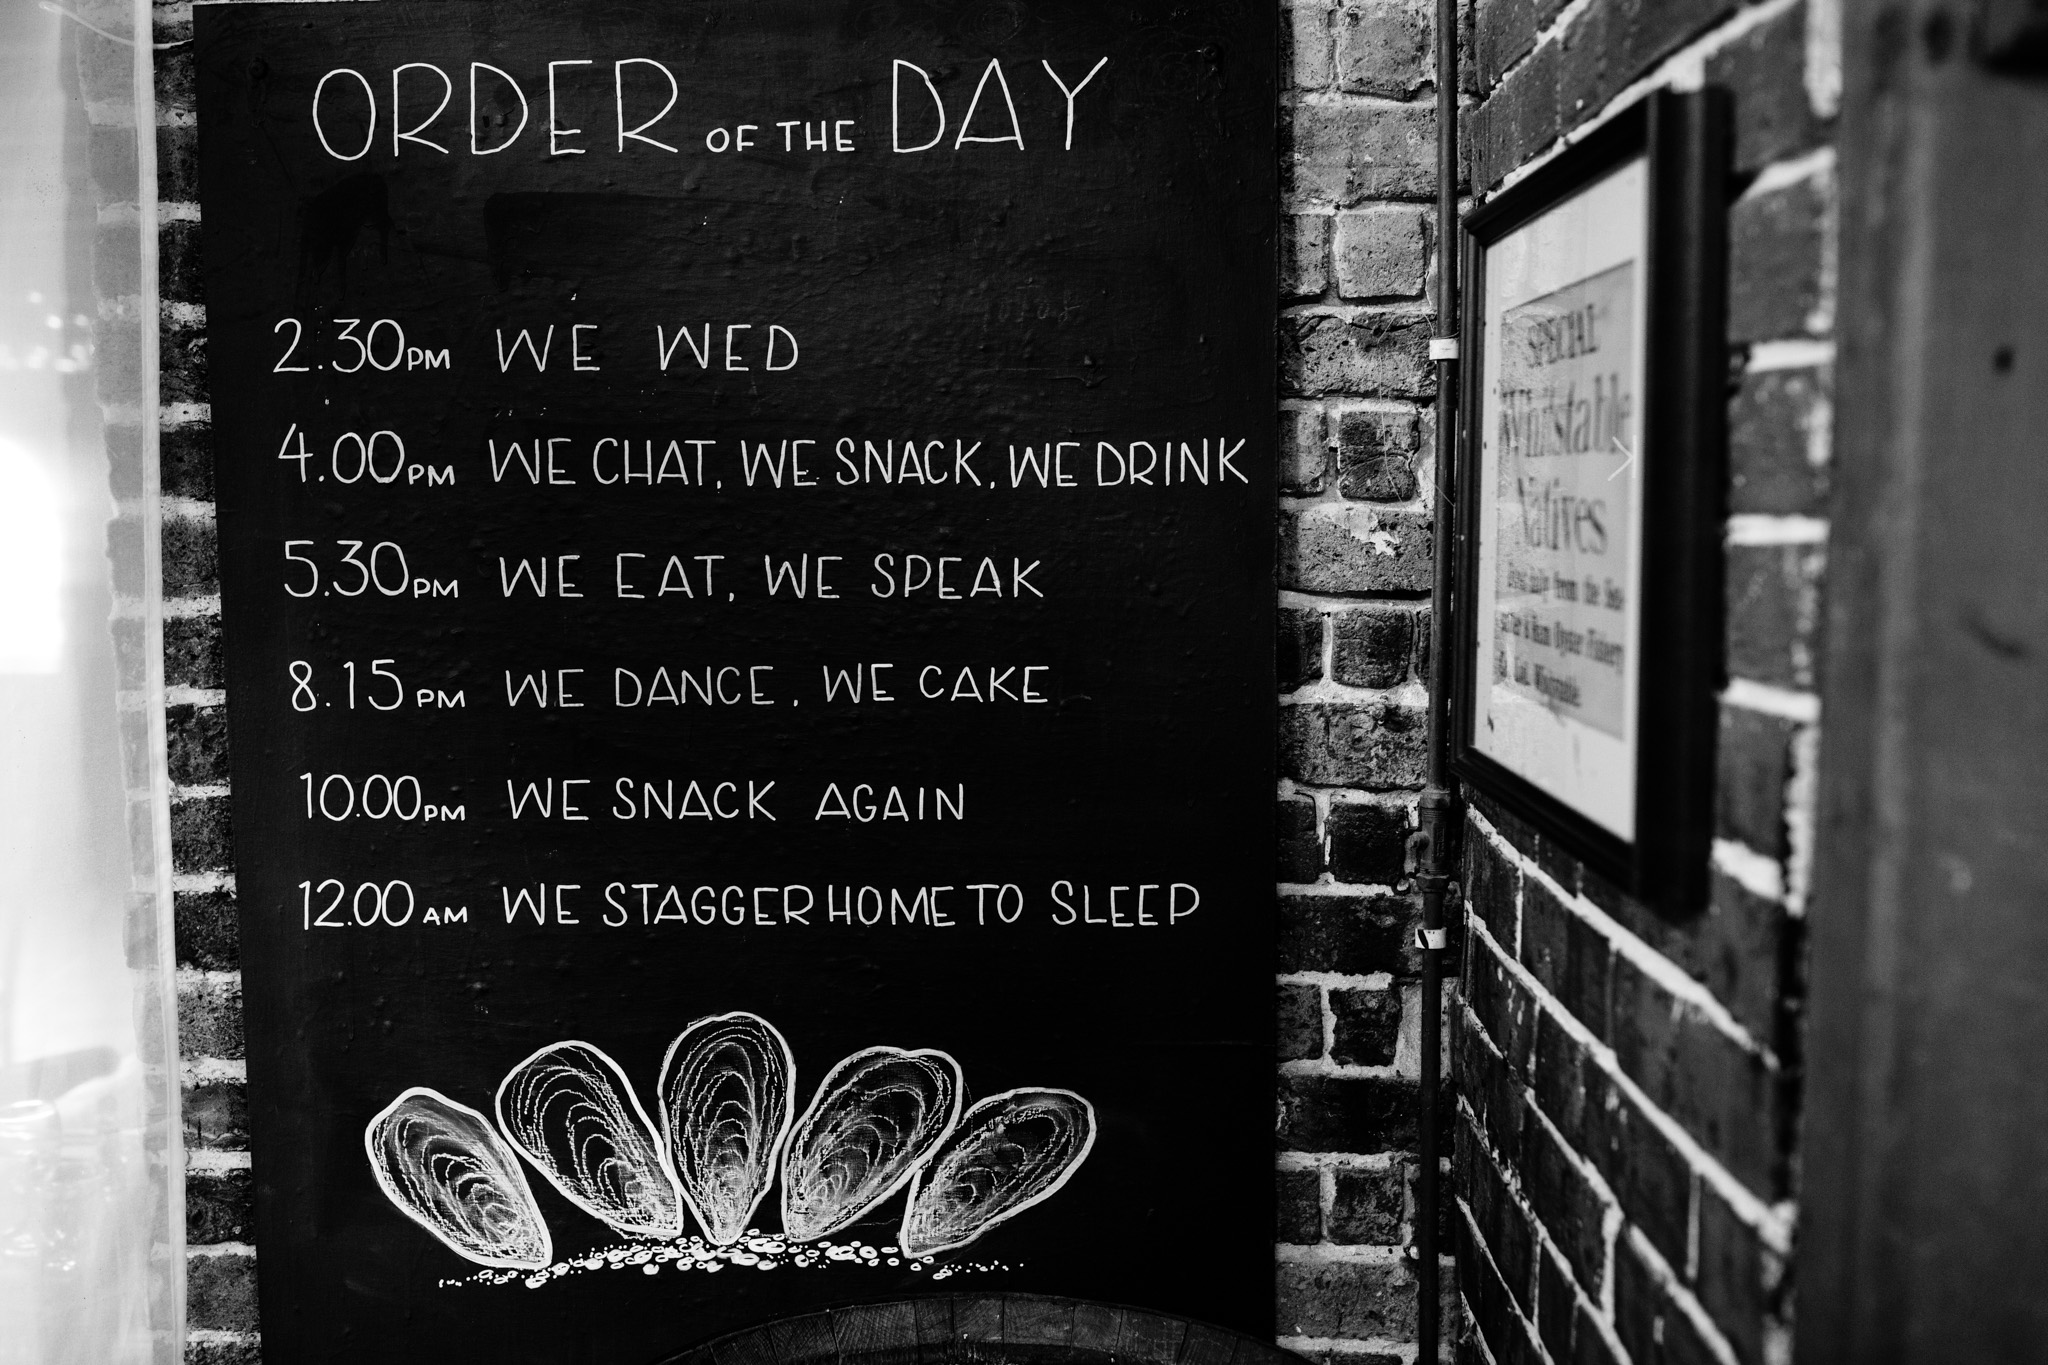 ORDER OF THE DAY
2.30PM WE WED
4.00PM WE CHAT, WE SNACK, WE DRINK
5.30PM WE EAT, WE SPEAK
8.15PM WE DANCE, WE CAKE
10.00PM WE SNACK AGAIN
12.00AM WE STAGGER HOME TO SLEEP
SPECIAL
Whitstable
Natives
from the
Oyster Fishery